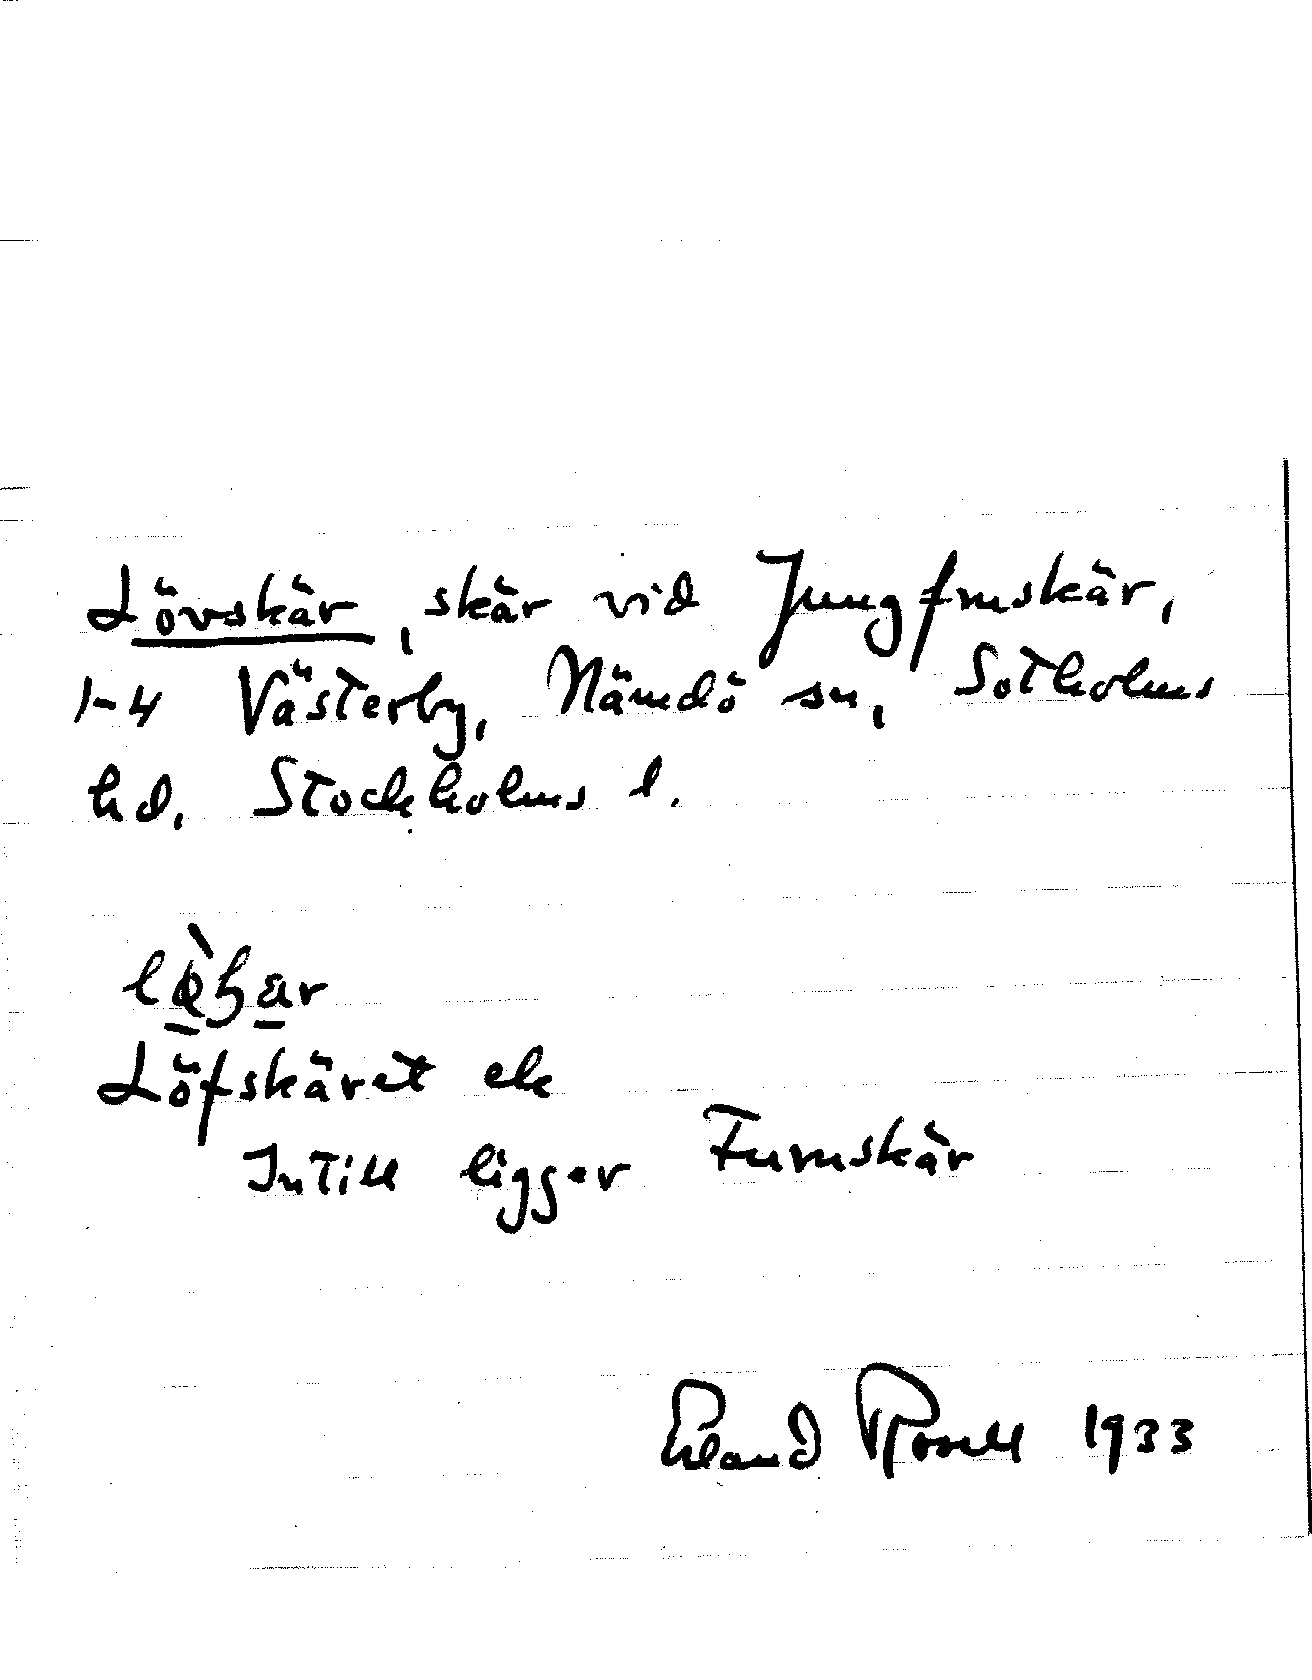 Lövskär, skär vid Jungfruskär,
1-4 Västerby, Nämdö sn, Sotholms
hd. Stockholms l.
Löfskäret ek
Intill ligger Furuskär
Erland Rosell 1933